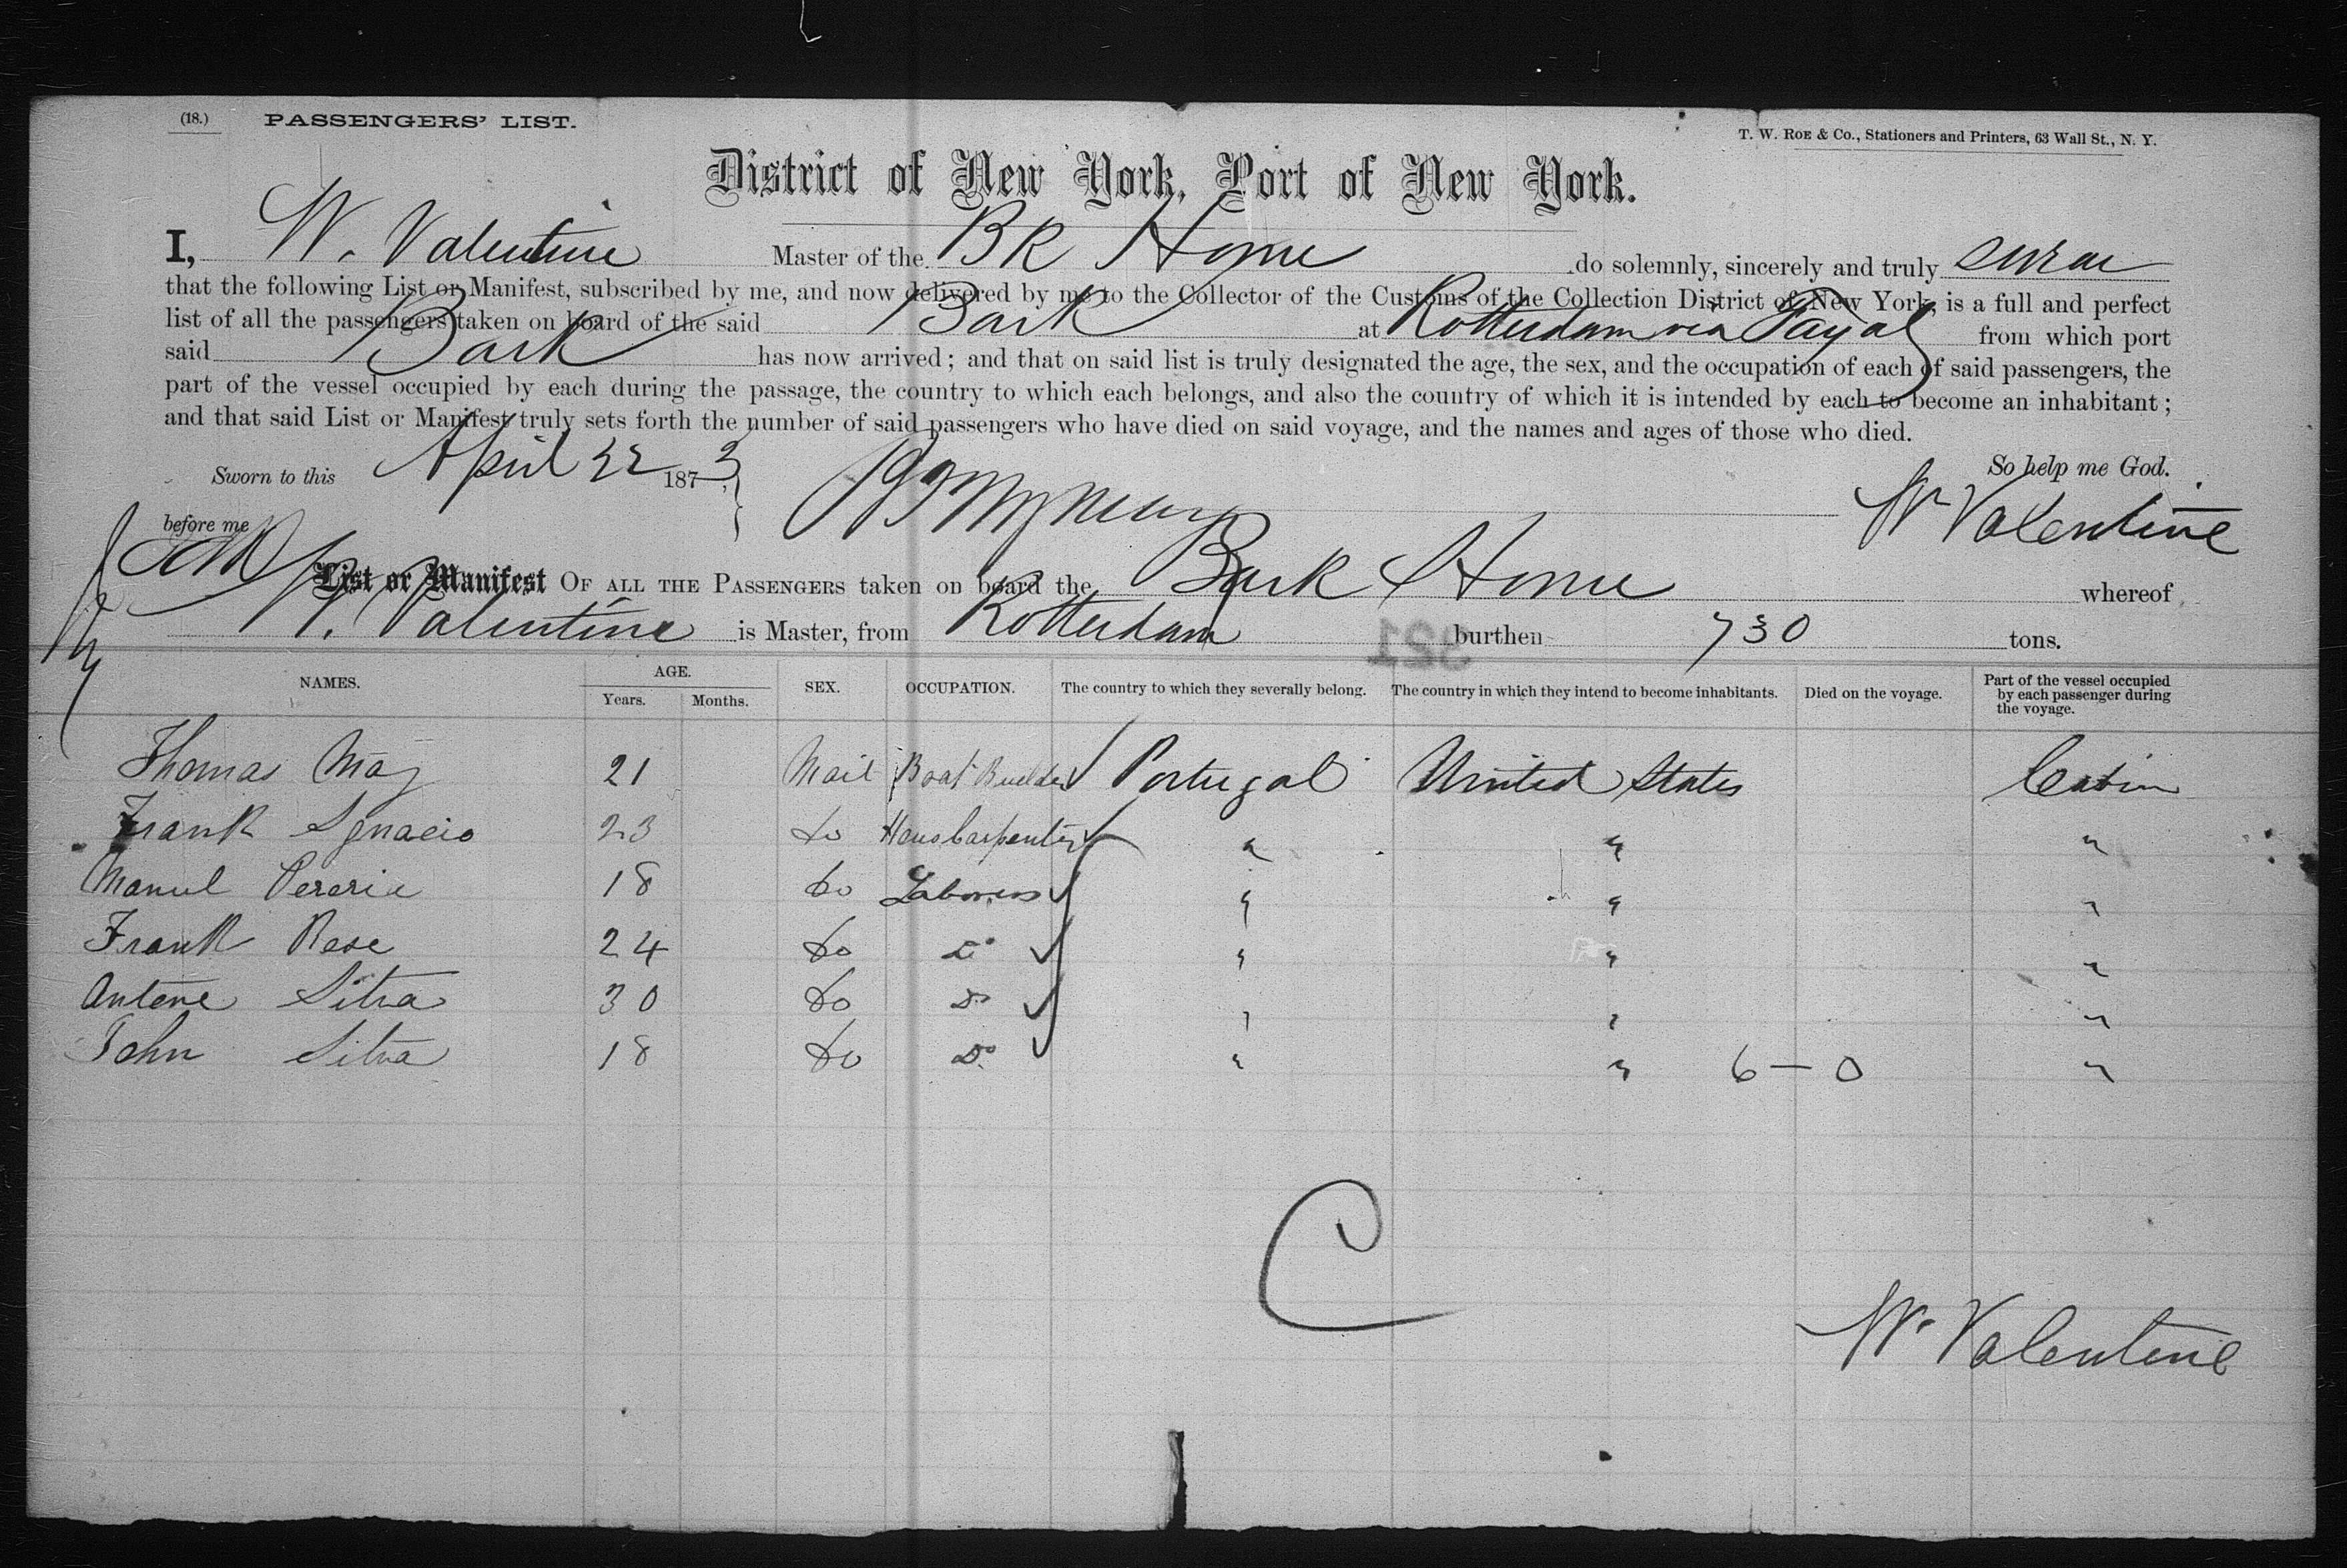 (18.) PASSENGERS' LIST.
T. W. ROE & Co., Stationers and Printers, 63 Wall St., N. Y.
District of New York, Port of New York.
I, W. Valentine Master of the Bk Home do solemnly, sincerely and truly swear
that the following List or Manifest, subscribed by me, and now delivered by me to the Collector of the Customs of the Collection District of New York, is a full and perfect
list of all the passengers taken on board of the said Bark at Rotterdam via Fayal from which port
said Bark has now arrived; and that on said list is truly designated the age, the sex, and the occupation of each of said passengers, the
part of the vessel occupied by each during the passage, the country to which each belongs, and also the country of which it is intended by each to become an inhabitant;
and that said List or Manifest truly sets forth the number of said passengers who have died on said voyage, and the names and ages of those who died.
Sworn to this April 22 1873 So help me God.
before me W Valentine
List or Manifest OF ALL THE PASSENGERS taken on board the Bark Home whereof
W. Valentine is Master, from Rotterdam burthen 730 tons.
321
NAMES. AGE. Years. Months. SEX. OCCUPATION. The country to which they severally belong. The country in which they intend to become inhabitants. Died on the voyage. Part of the vessel occupied by each passenger during the voyage.
Thomas 21 Mail Boat Builder Portugal United States Cabin
Frank Ignacio 23 do Hous Carpenter " " "
Manul Peraria 18 do Laborers " " "
Frank Rose 24 do Do " " "
Antone Silva 30 do Do " " "
John Silva 18 do Do " " 6 — 0 "
C
W. Valentine